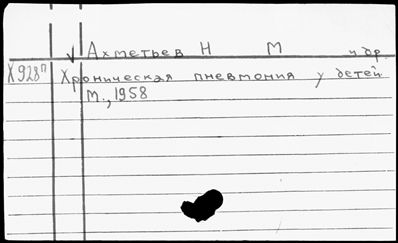 Ахметьев Н М и др.
Х928п Хроническая пневмония у детей.
М., 1958